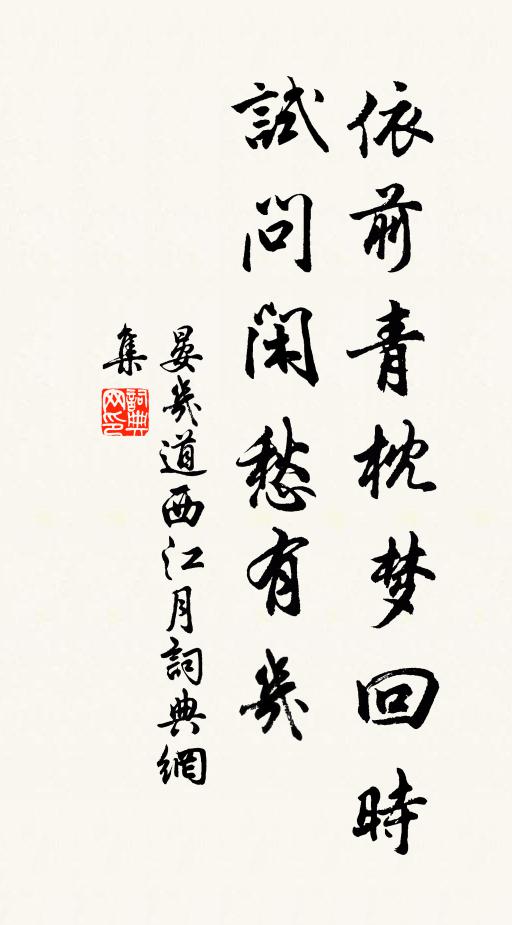 依前青枕梦回時
試問閑愁有幾
晏幾道西江月詞典網
集
詞典网印